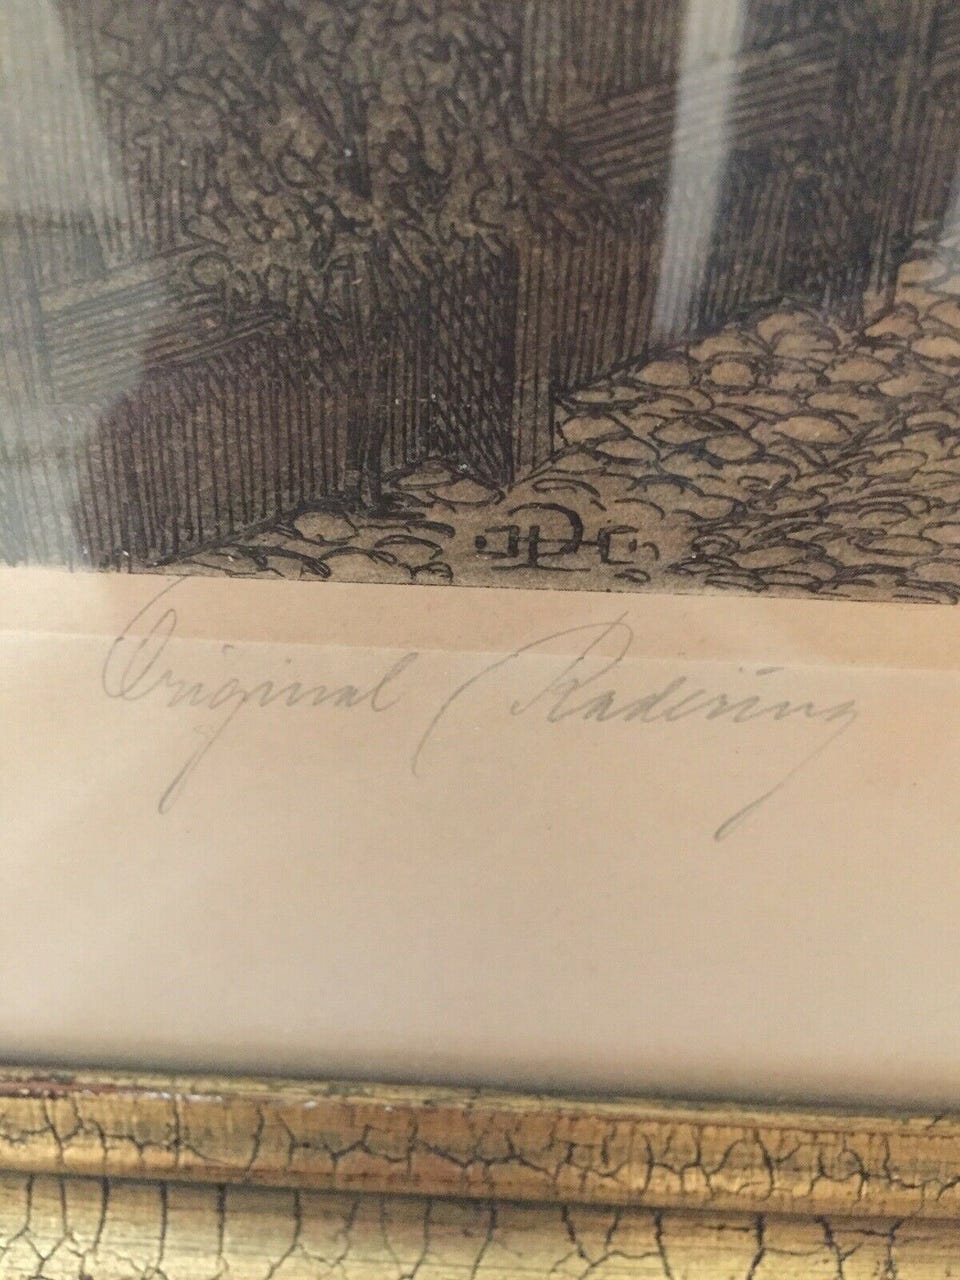 Original Radierung